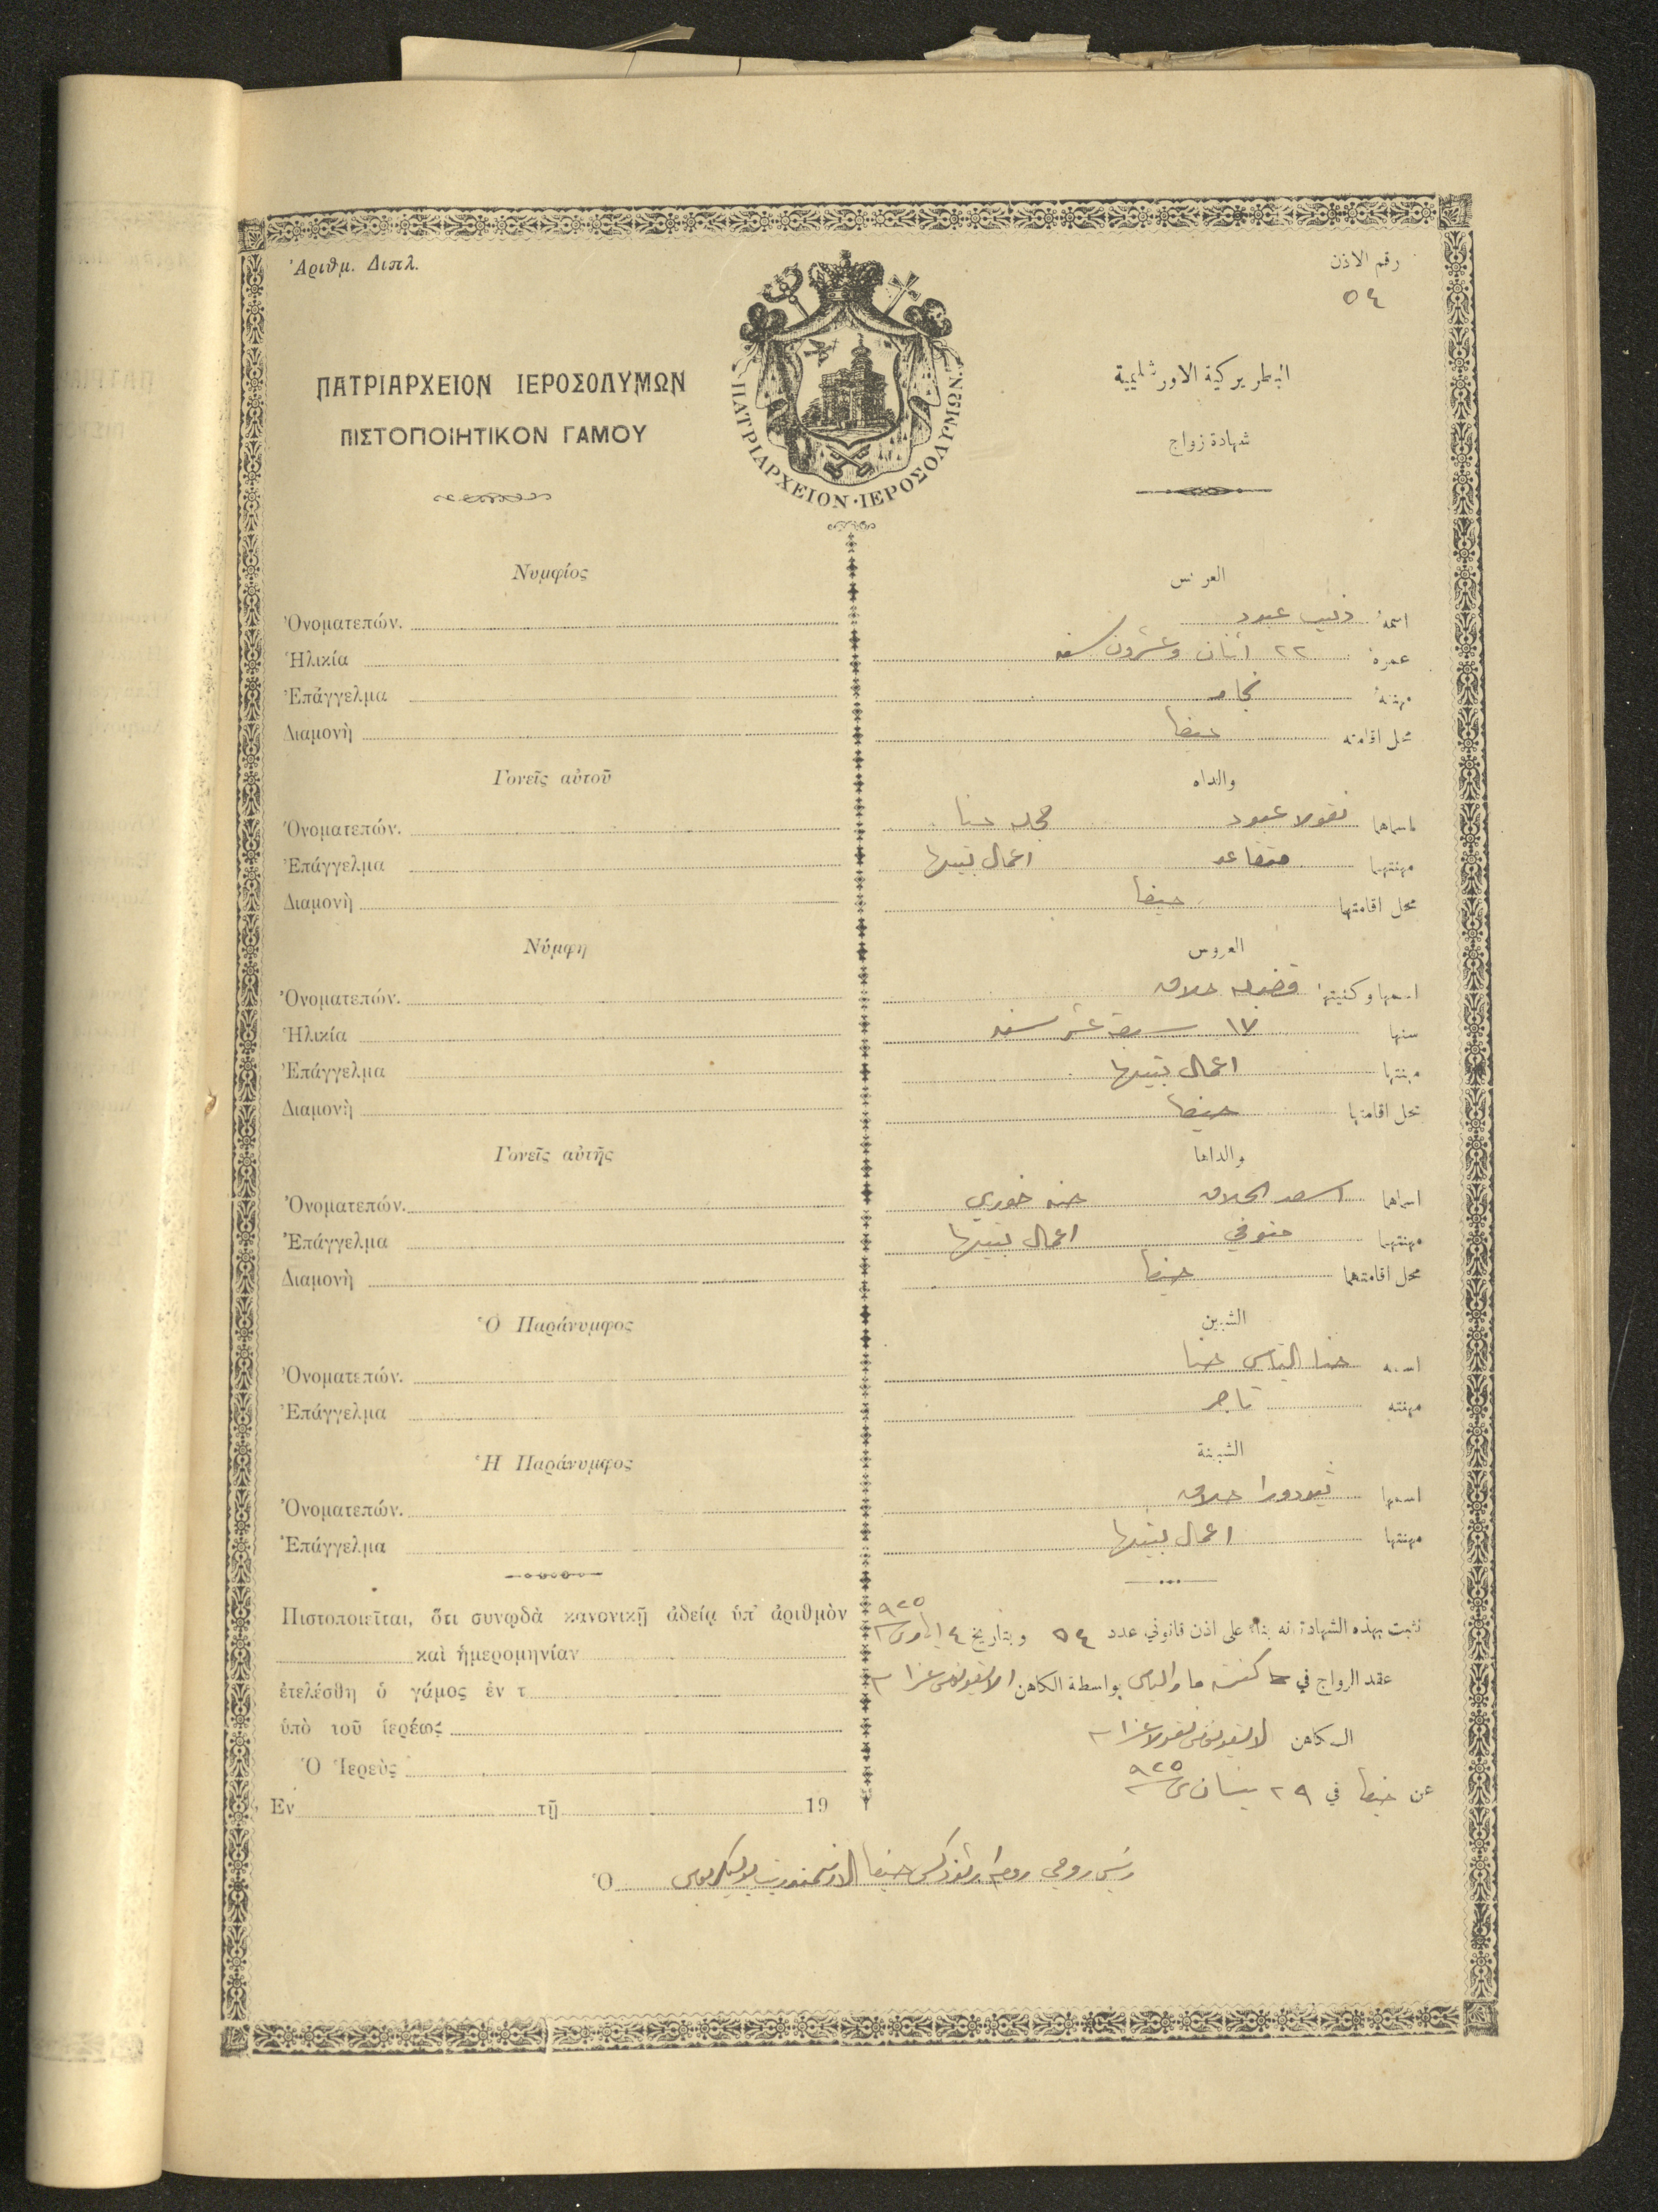 Ἀριθμ. Διπλ.
رقم الاذن
٥٤
ΠΑΤΡΙΑΡΧΕΙΟΝ ΙΕΡΟΣΟΛΥΜΩΝ
ΠΙΣΤΟΠΟΙΗΤΙΚΟΝ ΓΑΜΟΥ
ΠΑΤΡΙΑΡΧΕΙΟΝ·ΙΕΡΟΣΟΛΥΜΩΝ.
البطريركية الاورشليمية
شهادة زواج
Νυμφίος
Ὀνοματεπών.
Ἡλικία
Ἐπάγγελμα
Διαμονὴ
Γονεῖς αὐτοῦ
Ὀνοματεπών.
Ἐπάγγελμα
Διαμονὴ
Νύμφη
Ὀνοματεπών.
Ἡλικία
Ἐπάγγελμα
Διαμονὴ
Γονεῖς αὐτῆς
Ὀνοματεπών.
Ἐπάγγελμα
Διαμονὴ
Ὁ Παράνυμφος
Ὀνοματεπών.
Ἐπάγγελμα
Ἡ Παράνυμφος
Ὀνοματεπών.
Ἐπάγγελμα
Πιστοποιεῖται, ὅτι συνῳδὰ κανονικῇ ἀδείᾳ ὑπ' ἀριθμὸν
καὶ ἡμερομηνίαν
ἐτελέσθη ὁ γάμος ἐν τ
ὑπὸ τοῦ ἱερέως
Ὁ Ἱερεὺς
Ἐν τῇ 19
العريس
اسمه ذيب عبود
عمره ٢٢ اثنان وعشرون سنه
مهنته نجار
محل اقامته حيفا
والداه
اسماهما نقولا عبود حنا
مهنتهما متقاعد اعمال بيتها
محل اقامتهما حيفا
العروس
اسمها وكنيتها حلاق
سنها ١٧ سبعة عشر سنه
مهنتها اعمال بيتها
محل اقامتها حيفا
والداها
اسماهما اسعد الحلاق حنه خوري
مهنتهما متوفي اعمال بيتها
محل اقامتهما حيفا
الشبين
اسمه حنا الياس حنا
مهنته تاجر
الشبينة
اسمها تيودورا حلاق
مهنتها اعمال بيتها
نثبت بهذه الشهادة انه بناء على اذن قانوني عدد ٥٤ وبتاريخ ١٤ ٩٢٥
عقد الزواج في كنيسة مار الياس بواسطة الكاهن
الكاهن
عن حيفا في ٢٩ نيسان ٩٢٥
Ὁ رئيس روحي روم ارثوذكس حيفا الارشمندريت